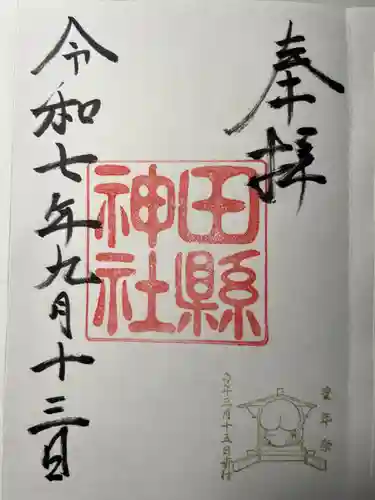 奉拝
田縣
神社
令和七年九月十三日
豊年祭